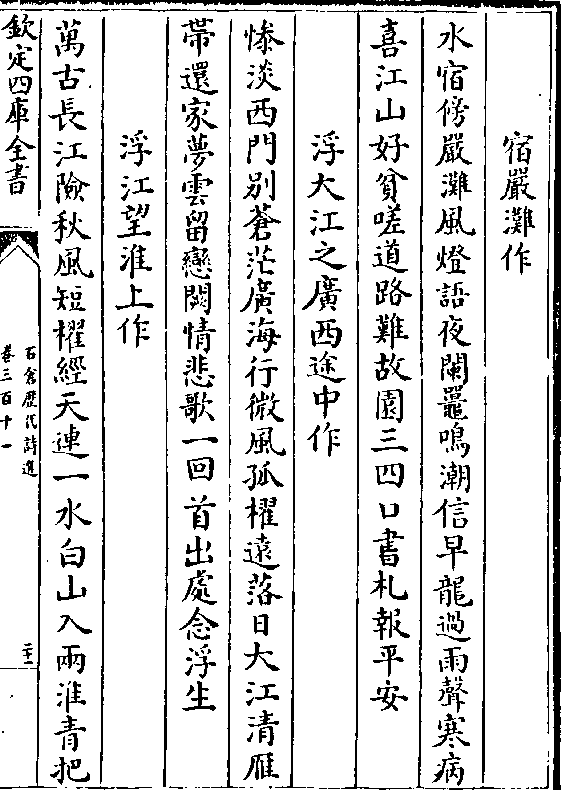 宿嚴灘作
水宿傍嚴灘風燈語夜闌鼉鳴潮信早龍過雨聲寒病
喜江山好貧嗟道路難故園三四口書札報平安
浮大江之廣西途中作
慘淡西門别蒼茫廣海行微風孤櫂遠落日大江清雁
帶還家夢雲留戀闕情悲歌一回首出處念浮生
浮江望淮上作
萬古長江險秋風短櫂經天連一水白山入兩淮青把
欽定四庫全書
石倉歷代詩選
卷三百十一
二十一